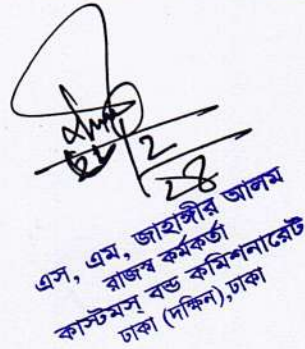 ২
২৪
এস, এম, জাহাঙ্গীর আলম
রাজস্ব কর্মকর্তা
কাস্টমস্ বন্ড কমিশনারেট
ঢাকা (দক্ষিন),ঢাকা